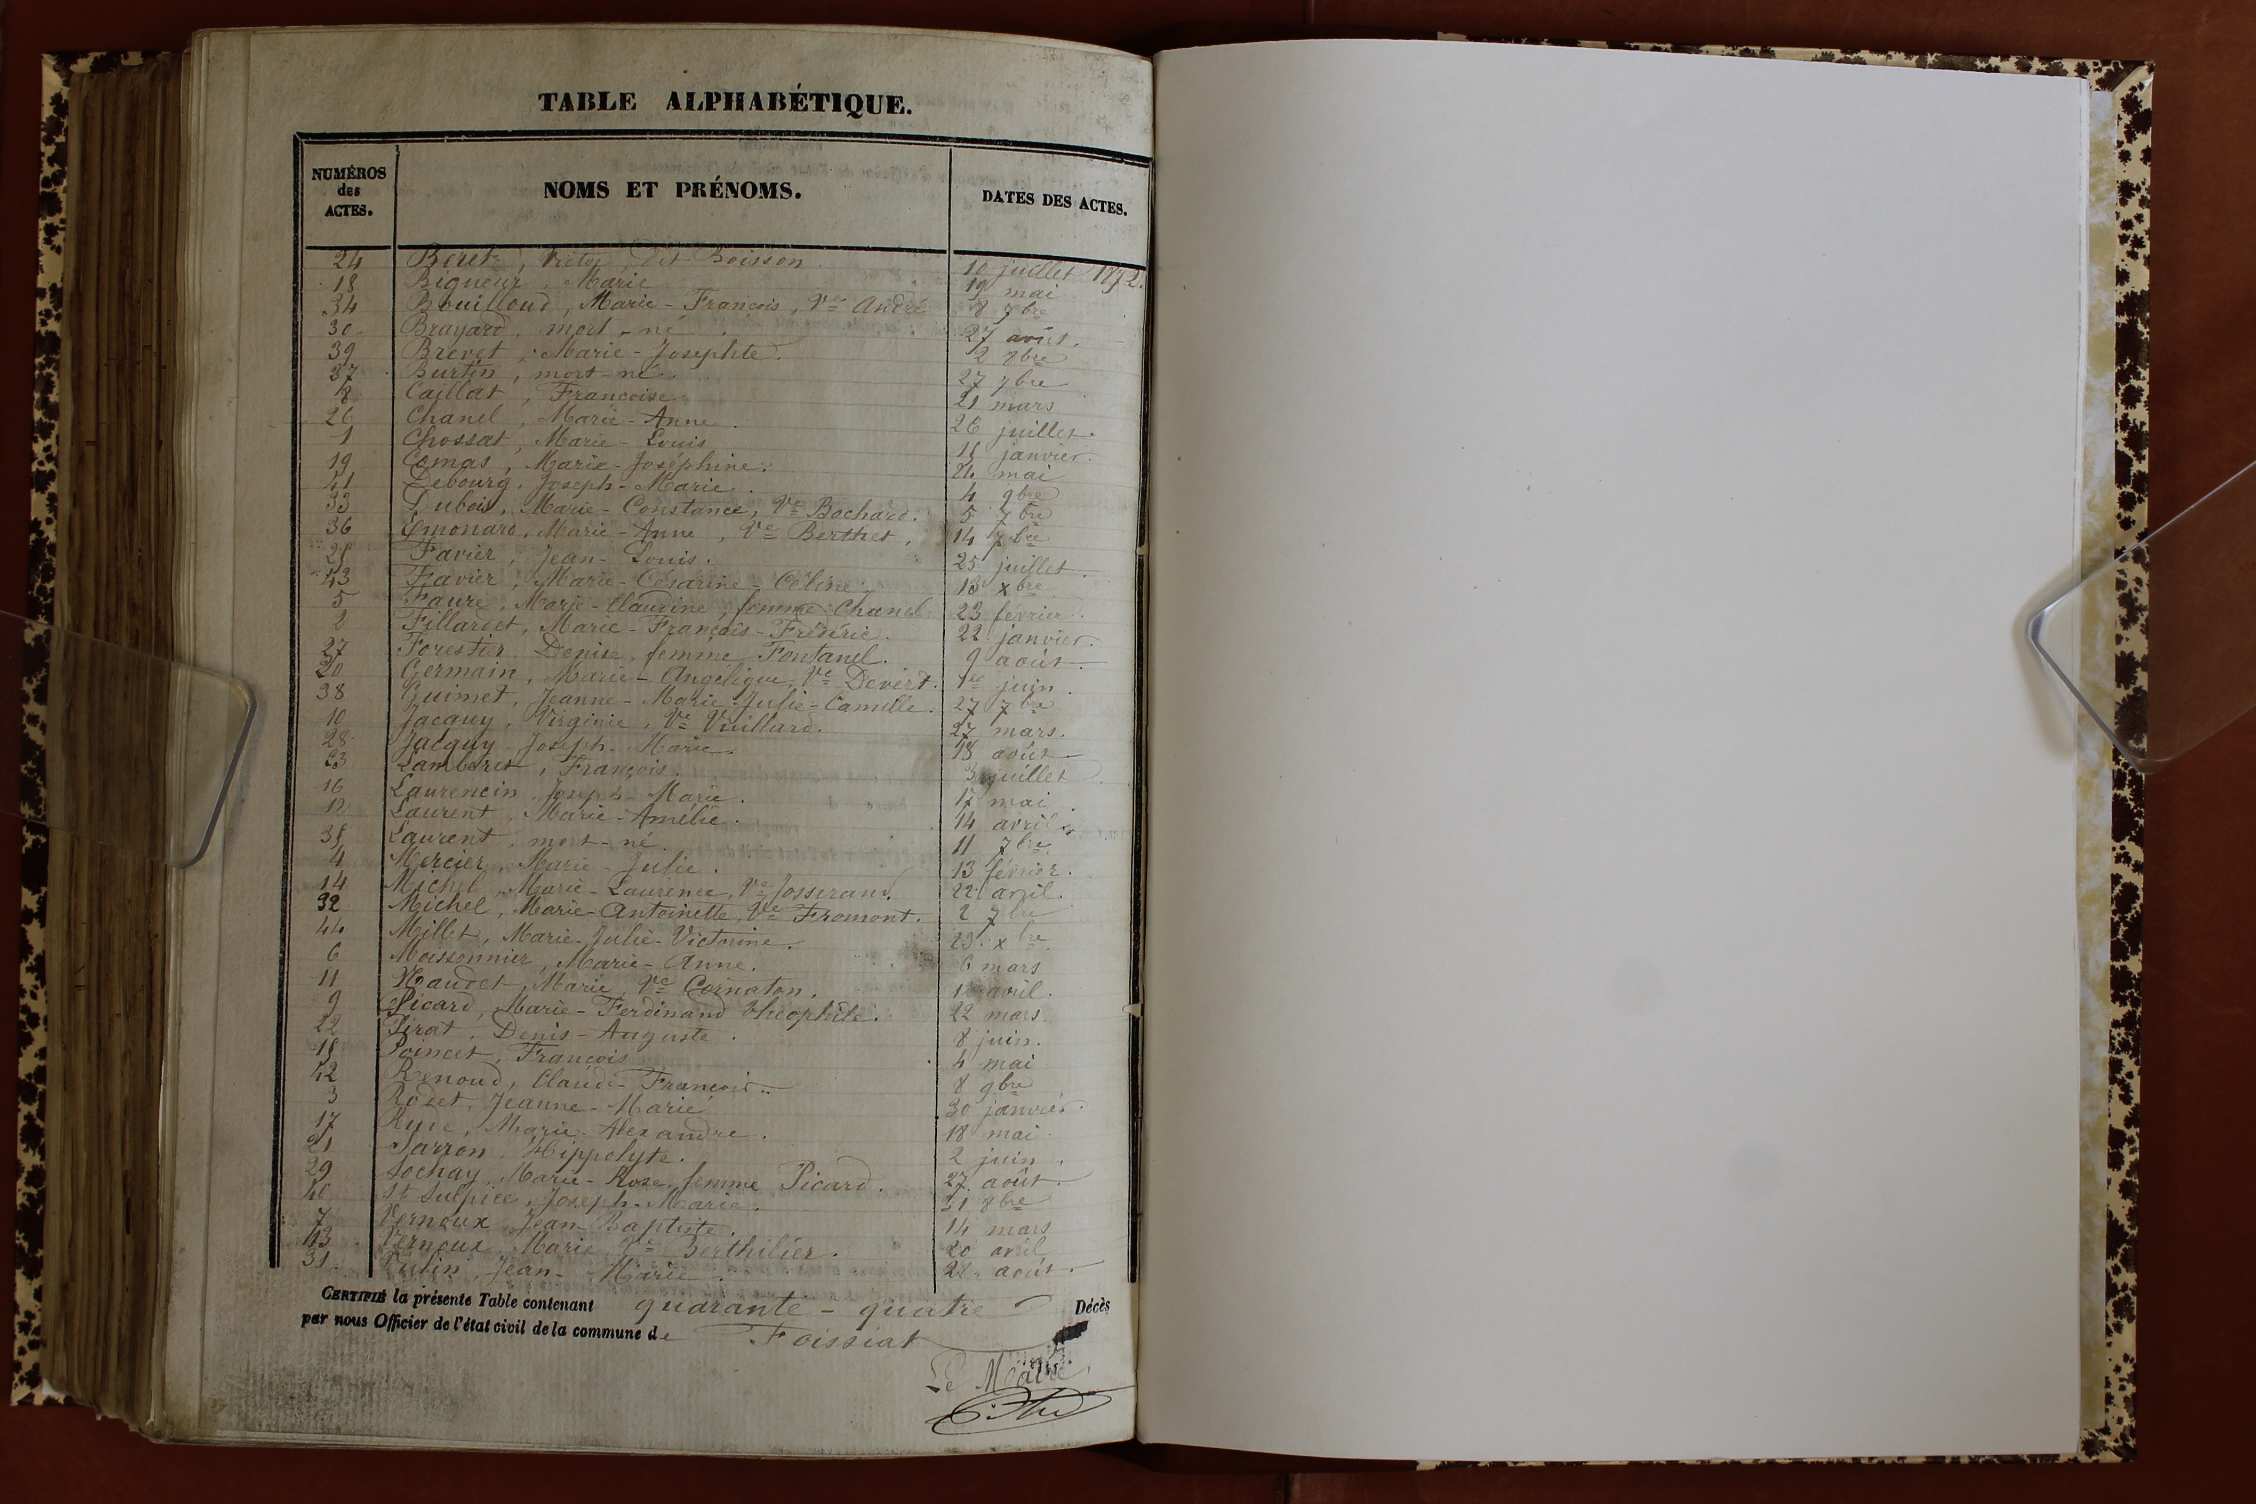 TABLE ALPHABÉTIQUE.
NUMÉROS des ACTES. NOMS ET PRÉNOMS. DATES DES ACTES.
24 Beret, Victor, dit Boisson 10 juillet 1872.
18 Bigueur, Marie 19 mai
34 Bouilloud, Marie-François, Ve André 8 7bre
30 Brayard, mort-né 27 août.
39 Brevet, Marie-Josephte. 2 8bre
37 Burtin, mort-né 27 7bre
8 Caillat, Francoise. 21 mars
26 Chanel, Marie-Anne. 26 juillet.
1 Chossat, Marie-Louis 15 janvier.
19 Comas, Marie-Joséphine. 24 mai
41 Debourg, Joseph-Marie. 4 9bre
33 Dubois, Marie-Constance, Ve Bochard. 5 7bre
36 Emonard, Marie-Anne, Ve Berthet, 14 7bre
25 Favier, Jean-Louis. 25 juillet.
43 Favier, Marie-Césarine-Céline. 13 xbre
5 Faure, Marie-Claudine, femme Chanel 23 février.
2 Fillardet, Marie-François-Frédéric. 22 janvier.
27 Forestier, Denise, femme Fontanel. 9 août.
20 Germain, Marie-Angélique, Ve Devert. 1er juin.
38 Guimet, Jeanne-Marie-Julie-Camille. 27 7bre
10 Jacquy, Virginie, Ve Vuillard. 27 mars.
28 Jacquy, Joseph-Marie. 18 août
23 Lamberet, François. 3 juillet
16 Laurencin, Joseph-Marie. 17 mai
12 Laurent, Marie-Amélie. 14 avril
35 Laurent, mort-né. 11 7bre
4 Mercier, Marie-Julie. 13 février.
14 Michel, Marie-Laurence, Ve Josserand. 22 avril.
32 Michel, Marie-Antoinette, Ve Fromont. 2 7bre
44 Millet, Marie-Julie-Victorine. 23 xbre
6 Moissonnier, Marie-Anne. 6 mars
11 Naudet, Marie, Ve Cornaton. 1er avril.
9 Picard, Marie-Ferdinand Théophile. 22 mars.
22 Pirat, Denis-Auguste. 8 juin.
15 Poincet, François 4 mai
42 Renoud, Claude-François. 8 9bre
3 Rodet, Jeanne-Marie 30 janvier.
17 Marie-Alexandre. 18 mai
21 Sarron, Hippolyte. 2 juin.
29 Sochay, Marie-Rose, femme Picard. 27 août.
40 St Sulpice, Joseph-Marie. 31 8bre
7 Vernoux, Jean-Baptiste. 14 mars
13 Vernoux, Marie, Ve Berthilier. 20 avril
31 Jean-Marie. 28 août.
CERTIFIÉ la présente Table contenant quarante-quatre Décès
par nous Officier de l'état civil de la commune de Foissiat
Le Maire